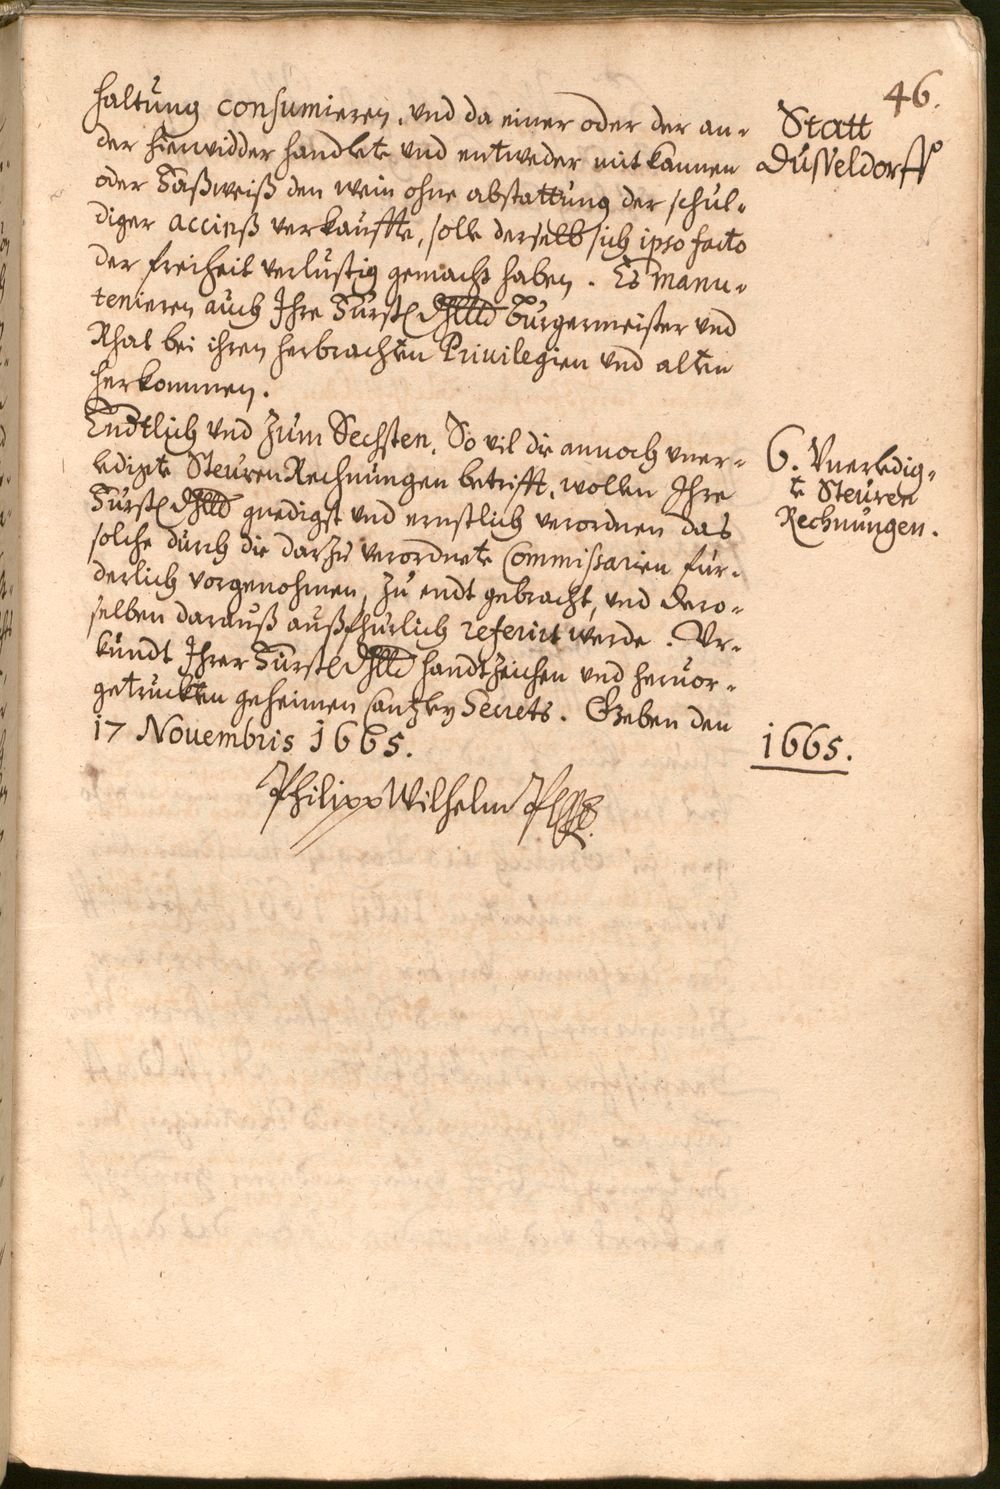 46.
Statt
Düsseldorff
haltung consumieren, und da einer oder der an-
der hierwidder handlete und entweder mit kannen
oder Faßweiß den wein ohne abstattung der schul-
diger accinß verkauffte, solle derselb sich ipso facto
der freiheit verlustig gemacht haben. Es manu-
tenieren auch Ihre Fürstl Dhlltt Burgermeister und
Rhat bei ihren herbrachten Privilegien und alten
herkommen.
Endtlich und Zum Sechsten, So vil die annoch uner-
ledigte Steuren Rechnungen betrifft, wollen Ihre
Fürstl Dhlltt gnedigst und ernstlich verordnen das
solche durch die darzu verordnete Commissarien für-
derlich vorgenohmen, zu endt gebracht, und dero-
selben darauß außfhürlich referirt werde. Ur-
kundt Ihrer Fürstl Dhlltt handtzeichen und hervor-
getruckten geheimen Cantzley Secrets. Geben den
17 Novembris 1665.
Philipp Wilhelm
6. Unerledig-
te Steuren
Rechnungen.
1665.